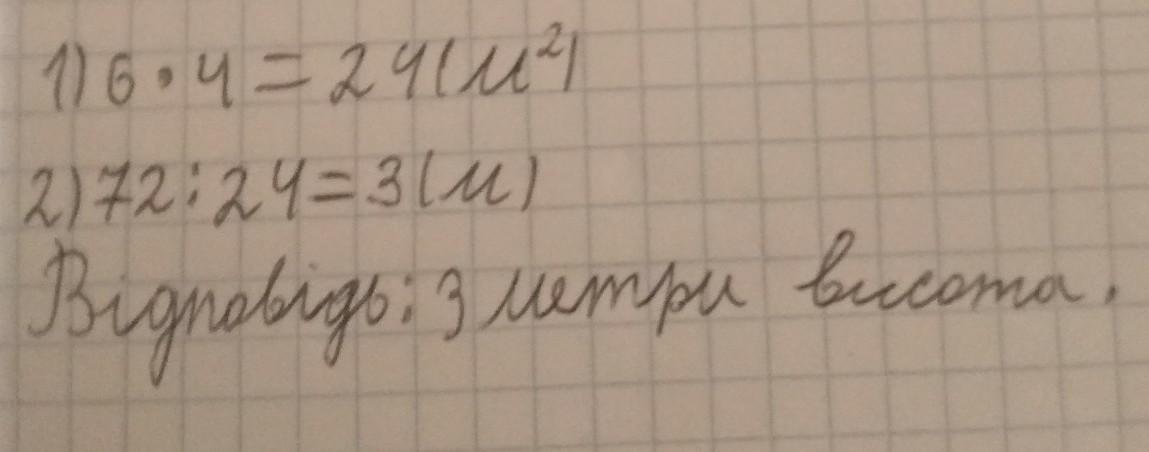 1) 6 · 4 = 24 (м²)
2) 72 : 24 = 3 (м)
Відповідь: 3 метри висота.